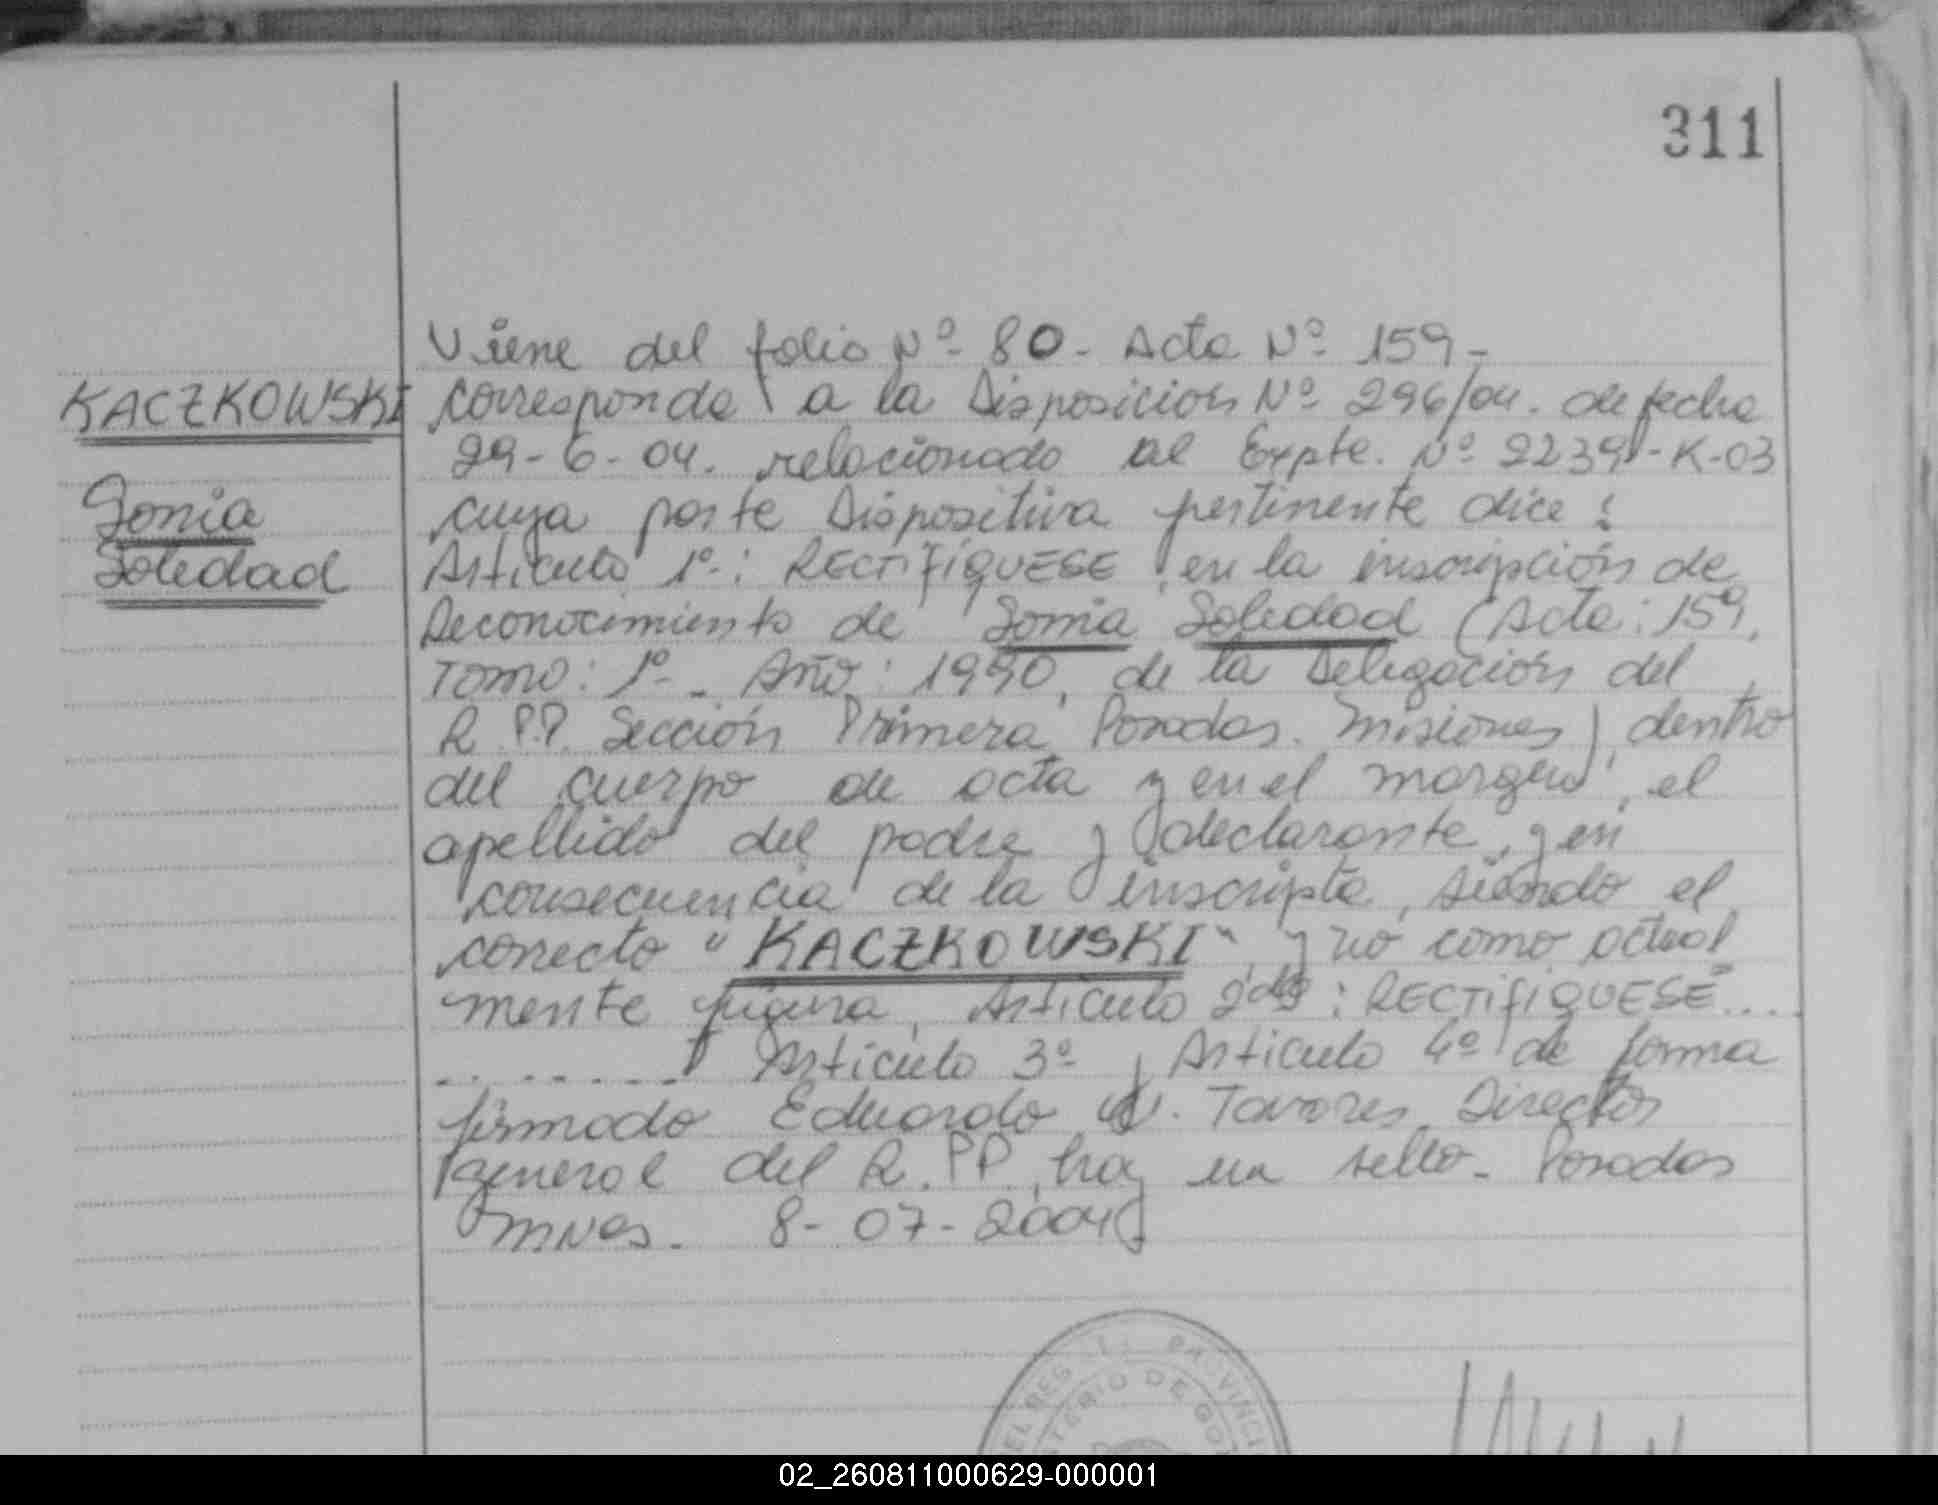 311
Viene del folio Nº 80 - Acta Nº 159 -
KACZKOWSKI
corresponde a la Disposición Nº 296/04. de fecha
29-6-04. relacionado al Expte. Nº 2239-K-03
Sonia
cuya parte Dispositiva pertinente dice :
Soledad
Artículo 1º: RECTIFIQUESE, en la inscripción de
Reconocimiento de Sonia Soledad (Acta: 159,
Tomo: 1º - Año: 1990, de la Delegación del
R.P.P. Sección Primera, Posadas. Misiones), dentro
del cuerpo de acta y en el margen, el
apellido del padre y declarante, y en
consecuencia de la inscripta, siendo el
correcto "KACZKOWSKI" y no como actual
mente figura, Artículo 2do: RECTIFIQUESE ....
......... Artículo 3º y Artículo 4º de forma
firmado Eduardo Tavares Director
General del R.PP. hay un sello - Posadas
Mnes. 8-07-2004
PROVINCI
DEL REG
STERIO DE GO
02_260811000629-000001